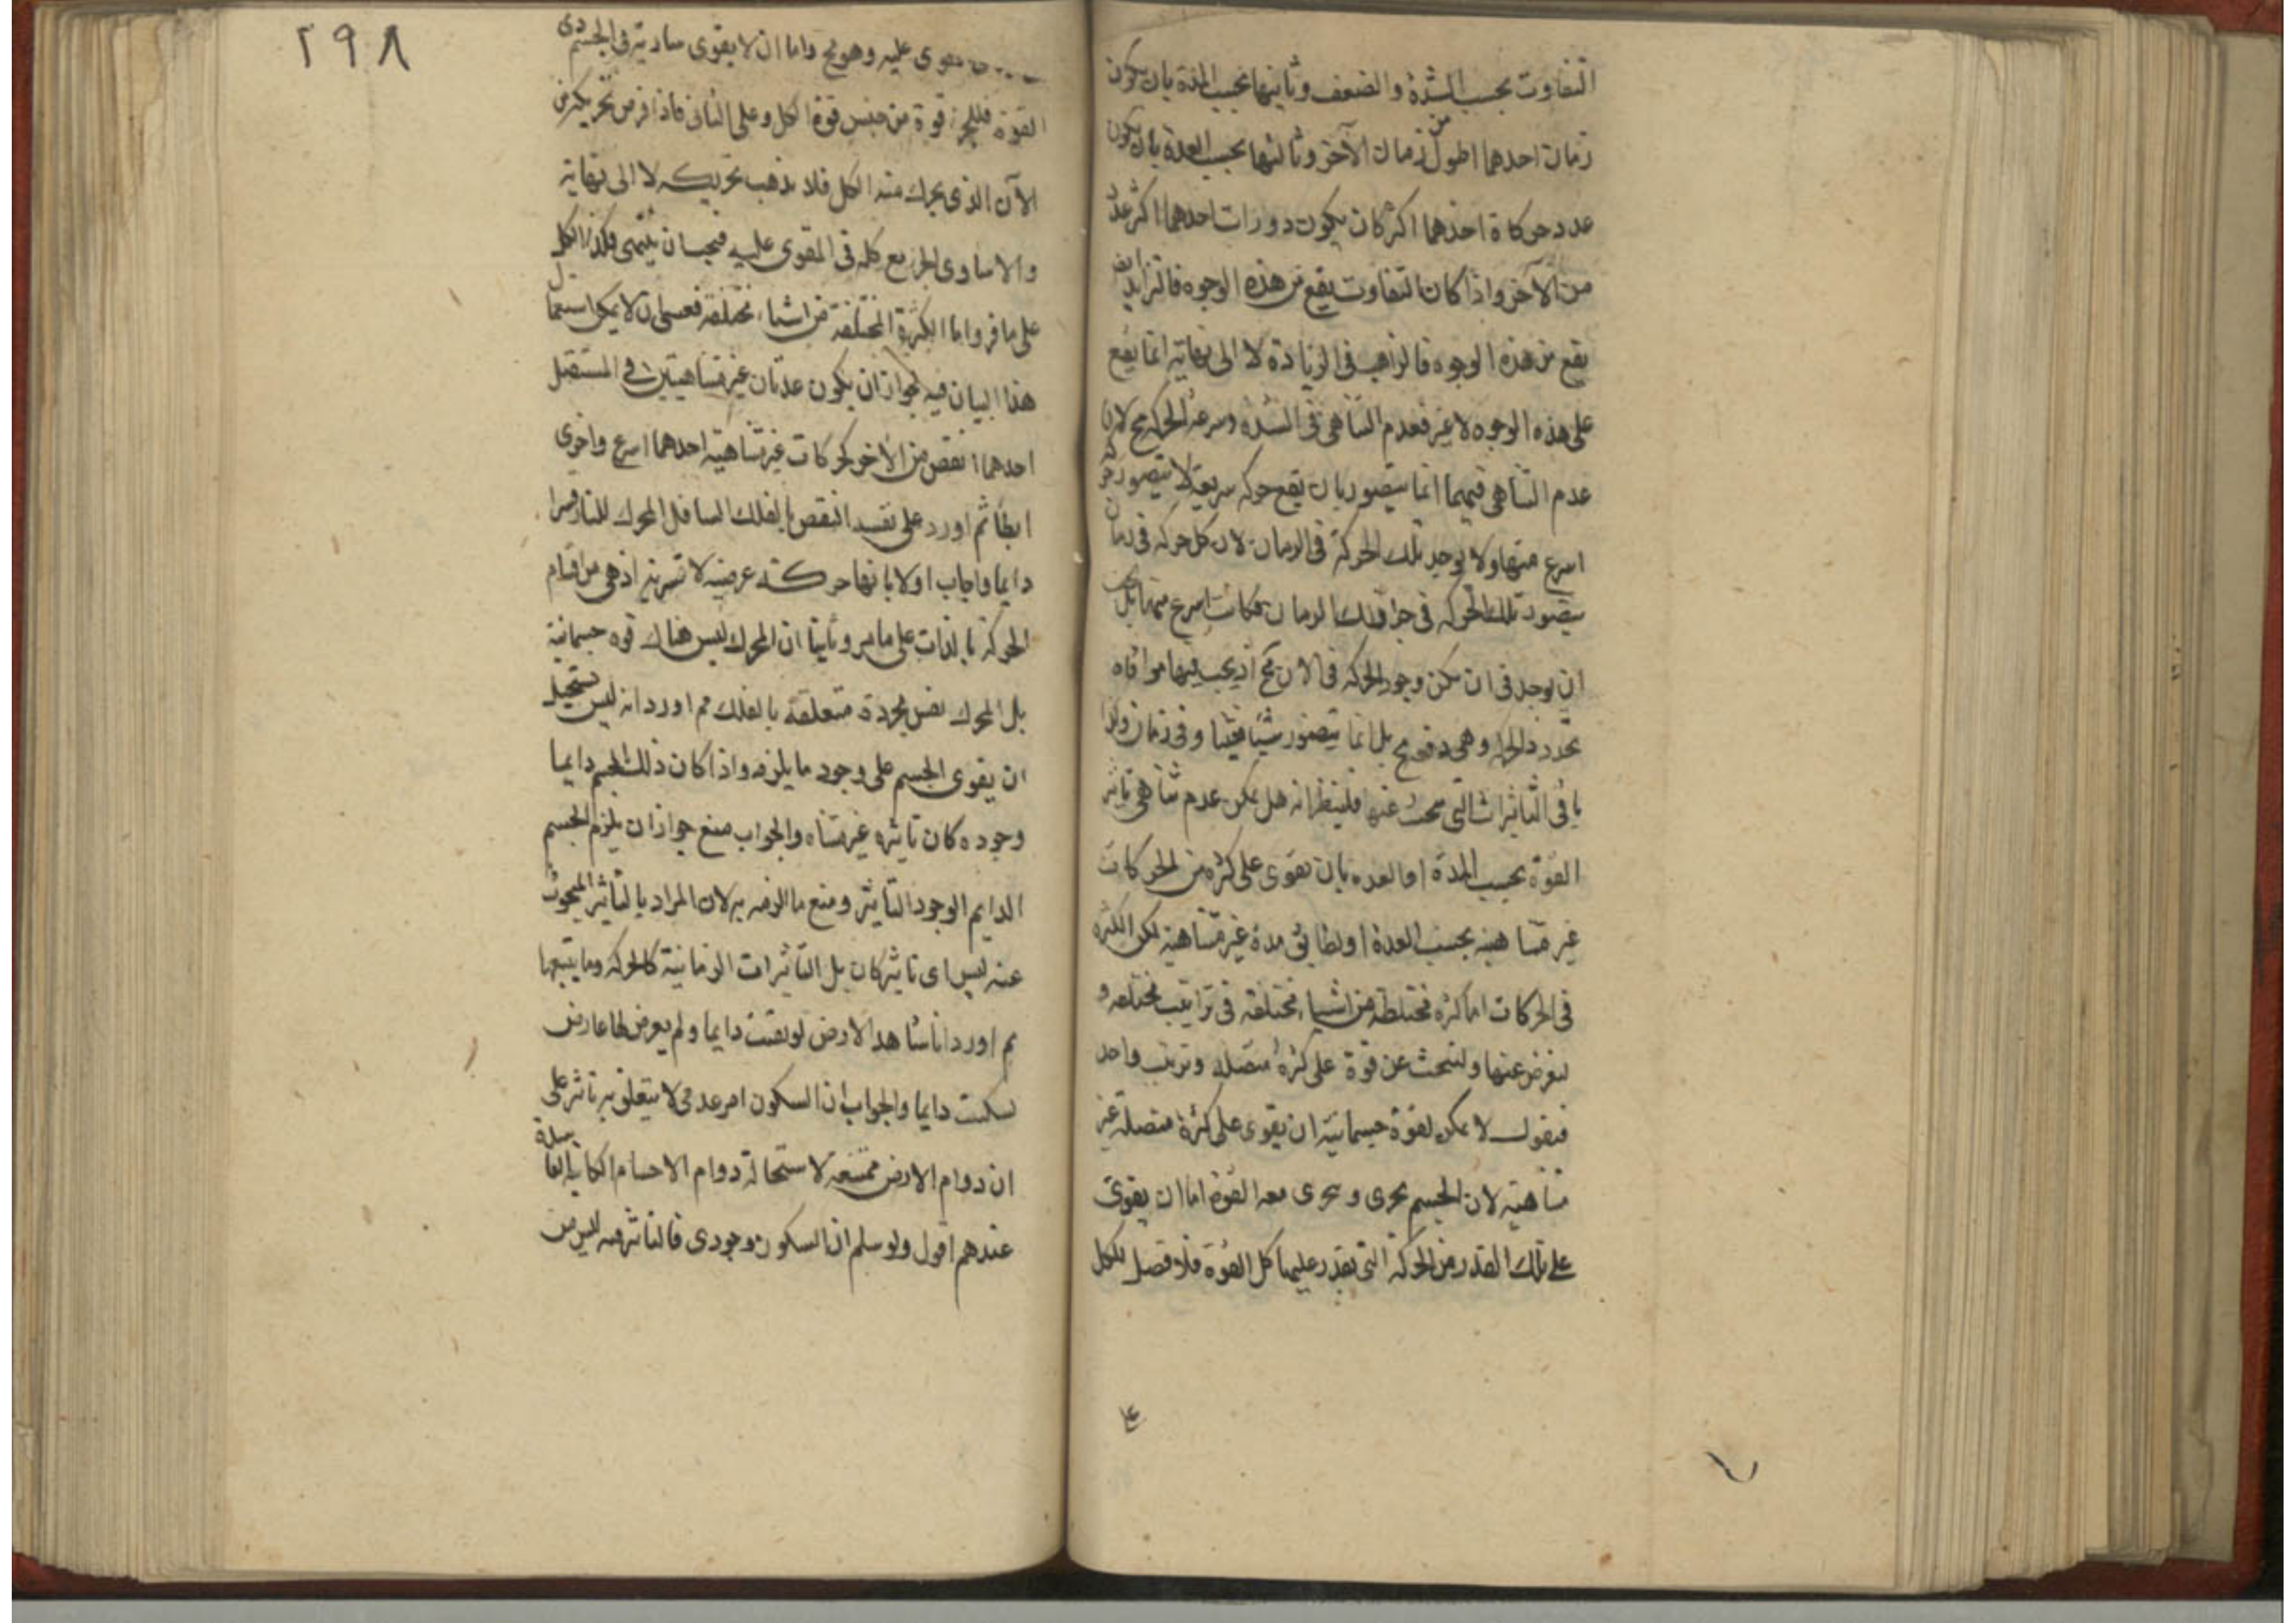 التفاوت بحسب الشدة والضعف وثانيها بحسب المدة بان يكون
زمان احدهما اطول من زمان الآخر وثالثها بحسب العدة بان يكون
عدد حركاة احدهما اكثر كان يكون دورات احدهما اكثر عدد
من الآخر واذا كان التفاوت يقع من هذه الوجوه فالتزايد ايض
يقع من هذه الوجوه فالذاهب فى الزيادة لا الى نهاية انما يقع
على هذه الوجوه لا غير فعدم التناهى فى الشدة وسرعة الحركة مح لان
عدم التناهى فيهما انما يتصور بان يقع حركة سريعة لا يتصور حركة
اسرع منها ولا يوجد تلك الحركة فى الزمان لان كل حركة فى زمان
يتصور تلك الحركة فى جزء ذلك الزمان فكانت اسرع منها بل يجب
ان يوجد فى ان لكن وجود الحركة فى الان مح اذ يجب فيها موافاه
حدود وهى دفعة مح بل انما يتصور شيئا فشيئا وفى زمان واما
باقى التاثيرات التى يبحث عنها فلينظر انه هل يمكن عدم تناهى تاثير
القوة بحسب المدة او العدة بان تقوى على كثرة من الحركات
غير متناهية بحسب العدة او يطابق مدة غير متناهية لكن الكثرة
فى الحركات اما كثرة مختلطة من اشياء مختلفة فى تراتيب مختلفة و
لنعرض عنها ولنبحث عن قوة على كثرة متصلة وترتيب واحد
فنقول لا يمكن لقوة جسمانية ان يقوى على كثرة متصلة غير
متناهية لان الجسم يجزى ويجزى معه القوة اما ان يقوى
على تلك القدر من الحركة التى يقدر عليها كل القوة فلا فصل للكل
٢٩٨
يقوى عليه وهو مح واما ان لا يقوى سارية فى الجسم
القوة فللجزء قوة من جنس قوة الكل وعلى الثانى فاذا فرض تحريكه من
الآن الذى يحرك منه الكل فلا يذهب تحريكه لا الى نهاية
والا ساوى الجزء مع كله فى المقوى عليه فيجب ان يتناهى فكذا الكل
على ما مر واما الكثرة المختلفة من اشياء مختلفة فعسى ان لا يمكن استعمال
هذا البيان فيه لجواز ان يكون عدتان غير متناهيتين فى المستقبل
احدهما انقص من الاخر كحركات غير متناهية احدهما اسرع واخرى
ابطأ ثم اورد على نفسه النقض بالفلك السافل المحرك للنار قسرا
دايما واجاب اولا بانها حركة عرضية لا قسرية اذ هى من اقسام
الحركة بالذات على ما مر وثانيا ان المحرك ليس هناك قوة جسمانية
بل المحرك نفس مجردة متعلقة بالفلك ثم اورد انه ليس يستحيل
ان يقوى الجسم على وجود ما يلزمه واذا كان ذلك الجسم دايما
وجوده كان تاثيره غير متناه والجواب منع جواز ان يلزم الجسم
الدايم الوجود التاثير ومنع ما الزمه به لان المراد بالتاثير المبحوث
عنه ليس اى تاثير كان بل التاثيرات الزمانية كالحركة وما يتبعها
ثم اورد انا نشاهد الارض لو بقيت دايما ولم يعرض لها عارض
لسكنت دايما والجواب ان السكون امر عدمى لا يتعلق به تاثير على
ان دوام الارض ممتنعة لاستحالة دوام الاجسام الكاينة الفاسدة
عندهم اقول ولو سلم ان السكون وجودى فالتاثير فيه ليس من